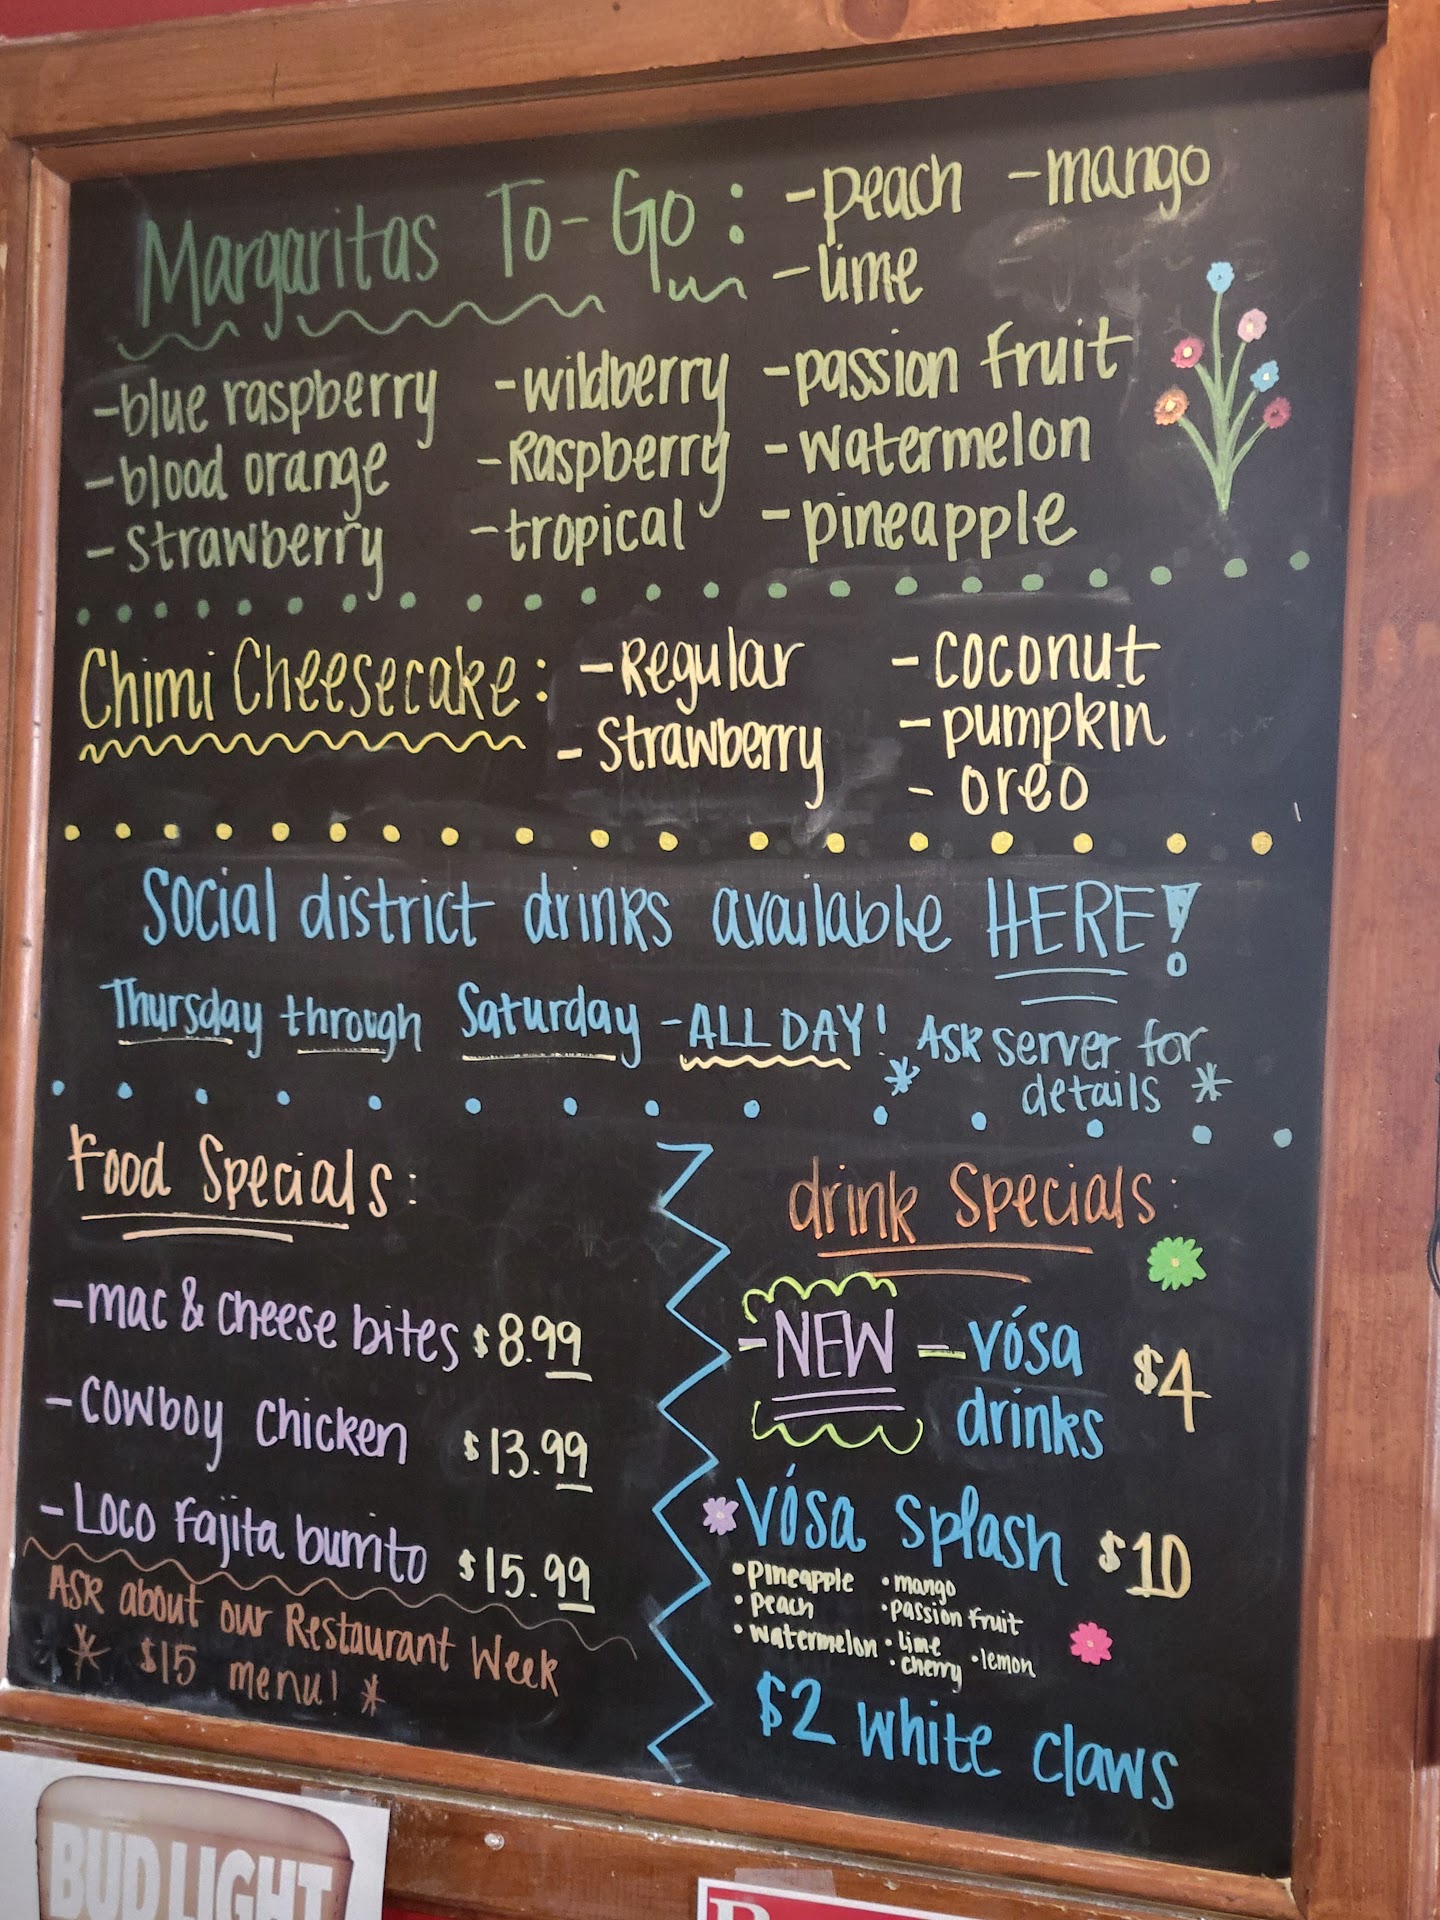 Margaritas To-Go: -peach -mango
-lime
-blue raspberry -wildberry -passion fruit
-blood orange -Raspberry -watermelon
-Strawberry -tropical -pineapple
Chimi Cheesecake: -Regular -coconut
-Strawberry -pumpkin
-oreo
Social district drinks available HERE!
Thursday through Saturday -ALL DAY! *Ask server for
details *
Food Specials:
-mac & cheese bites $8.99
-Cowboy chicken $13.99
-Loco Fajita burrito $15.99
Ask about our Restaurant Week
* $15 menu! *
drink Specials:
-NEW -vósa $4
drinks
vósa splash $10
•pineapple •mango
•peach •passion fruit
•watermelon •lime •lemon
•cherry
$2 white claws
BUD LIGHT